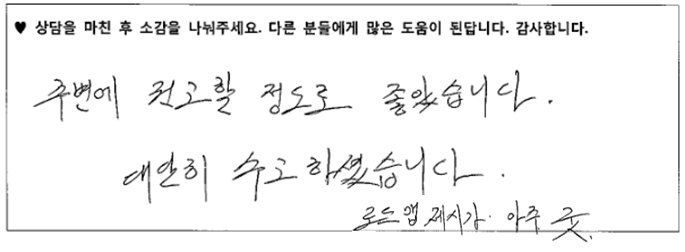 ♥ 상담을 마친 후 소감을 나눠주세요. 다른 분들에게 많은 도움이 된답니다. 감사합니다.
주변에 권고할 정도로 좋았습니다.
대단히 수고하셨습니다.
로드맵 제시가 아주 굿.